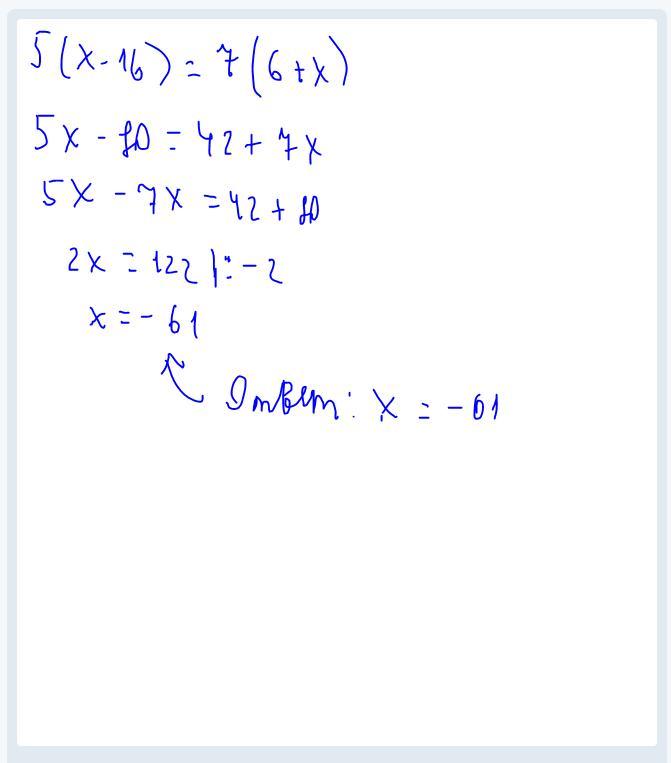 5(x-16) = 7(6+x)
5x - 80 = 42 + 7x
5x - 7x = 42 + 80
2x = 122 |: -2
x = - 61
Ответ: x = -61